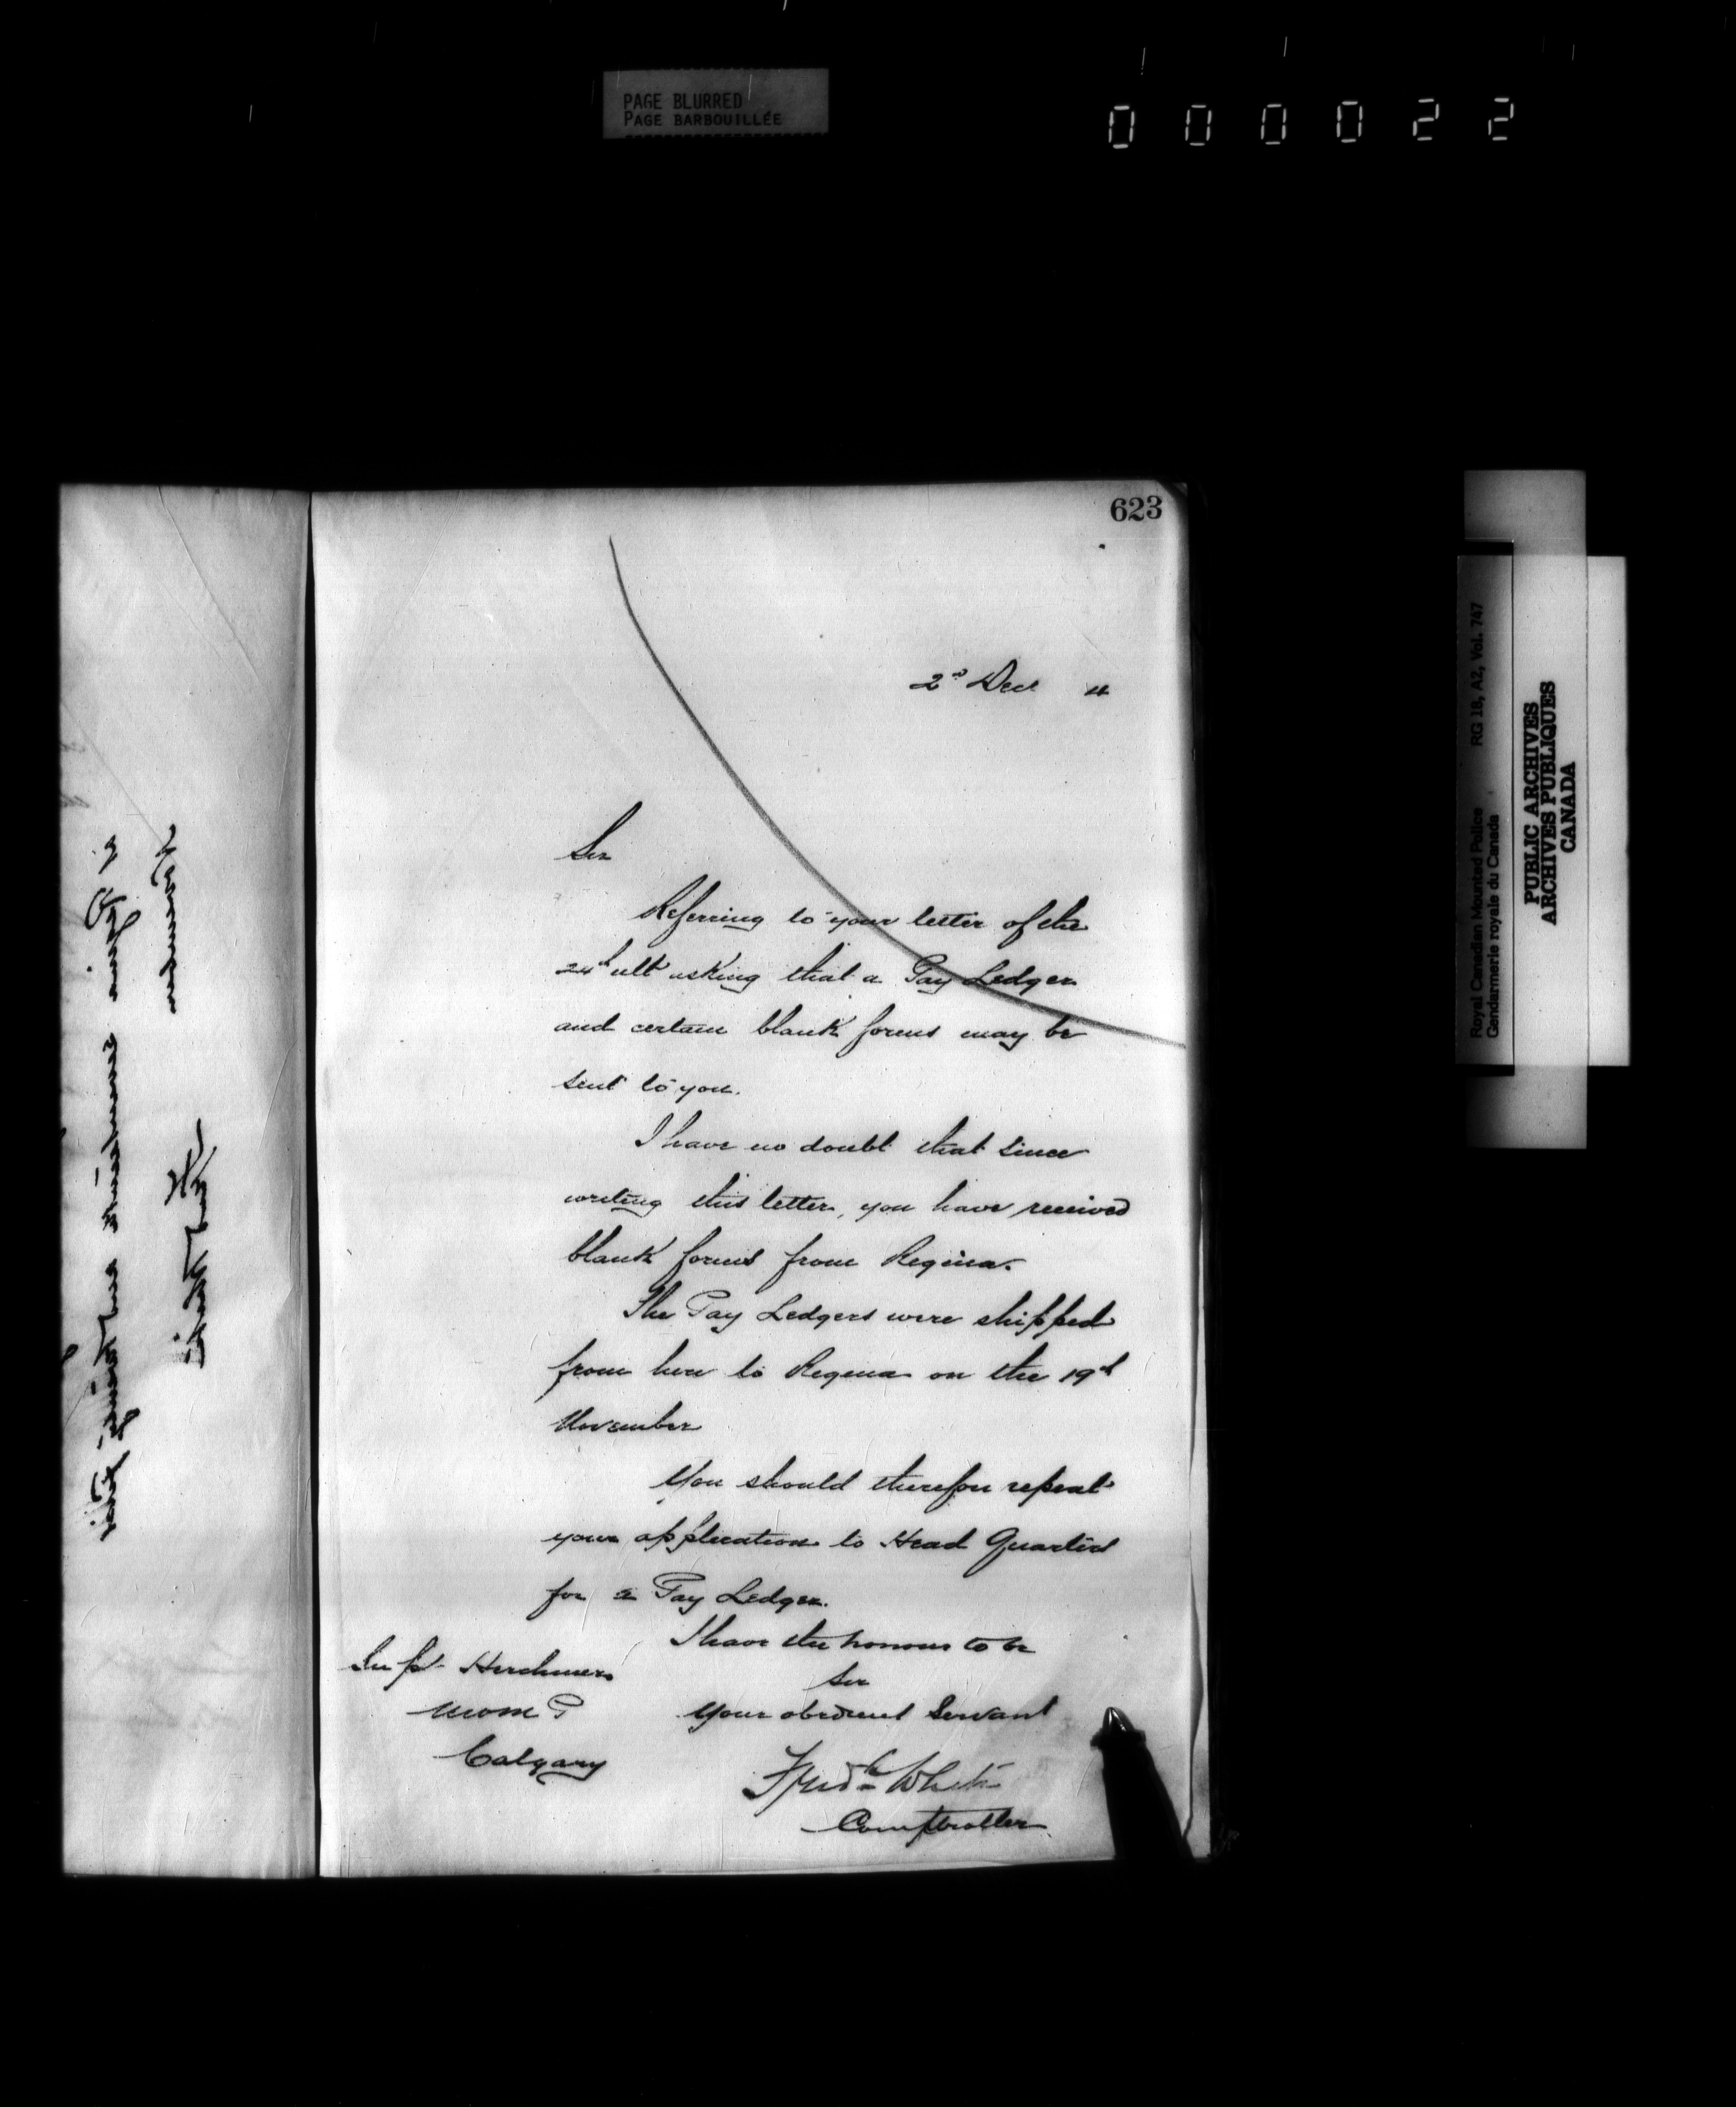 PAGE BLURRED
PAGE BARBOUILLÉE
000022
623
2nd Decr 4
Sir
Referring to your letter of the
24th ult asking that a Pay Ledger
and certain blank forms may be
sent to you.
I have no doubt that since
writing this letter, you have received
blank forms from Regina.
The Pay Ledgers were shipped
from here to Regina on the 19th
November
You should therefore repeat
your application to Head Quarters
for a Pay Ledger.
I have the honour to be
Sir
Your obedient Servant
Fredk White
Comptroller
Supt Herchmer
NWMP
Calgary
Royal Canadian Mounted Police RG 18, A2, Vol. 747
Gendarmerie royale du Canada
PUBLIC ARCHIVES
ARCHIVES PUBLIQUES
CANADA